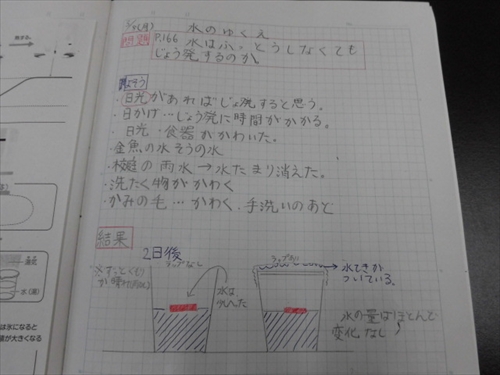 水のゆくえ
問題 P.166 水はふっとうしなくても
じょう発するのか
よそう
・日光があればじょう発すると思う。
・日かげ…じょう発に時間がかかる。
日光・食器がかわいた。
・金魚の水そうの水
・校庭の雨水→水たまり消えた。
・洗たく物がかわく
・かみの毛…かわく・手洗いのあと
結果
2日後
ラップなし
水は
水てきが
ついている。
水の量はほとんど
変化なし
水(液)
は水になると
積が大きくなる